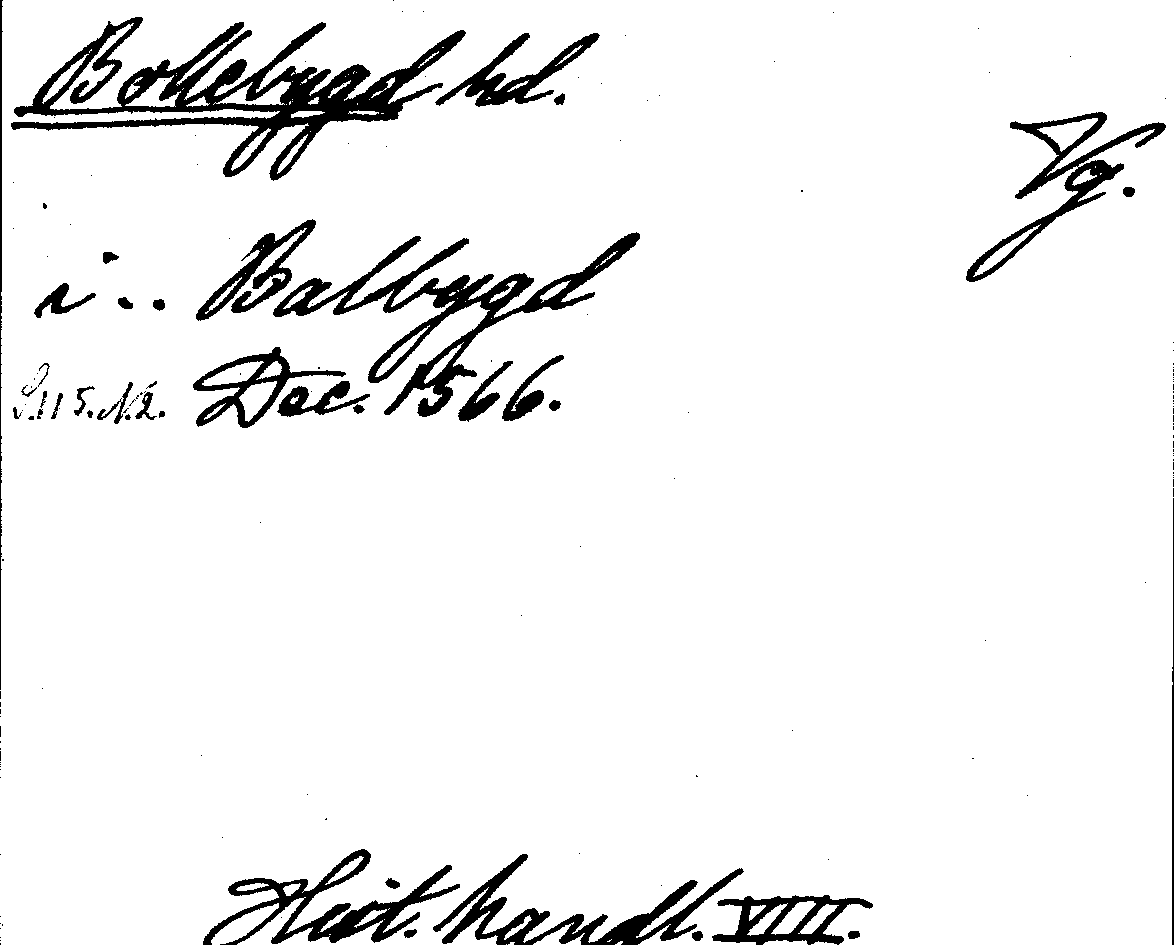 Bollebygd hd.
Vg.
i .. Balbygd
S. 115. N. 2. Dec. 1566.
Hist. handl. VIII.